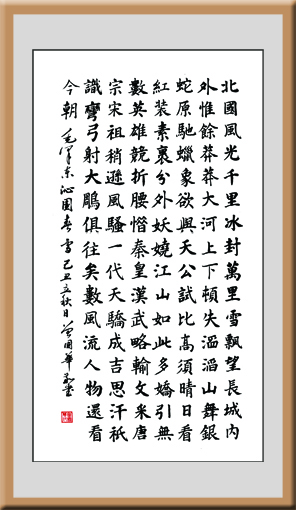 北國風光千里冰封萬里雪飄望長城內
外惟餘莽莽大河上下頓失滔滔山舞銀
蛇原馳蠟象欲與天公試比高須晴日看
紅装素裹分外妖嬈江山如此多嬌引無
數英雄競折腰惜秦皇漢武略輸文采唐
宗宋祖稍遜風騷一代天驕成吉思汗祇
識彎弓射大鵰俱往矣數風流人物還看
今朝 毛澤東沁園春雪己丑立秋日曾國華書